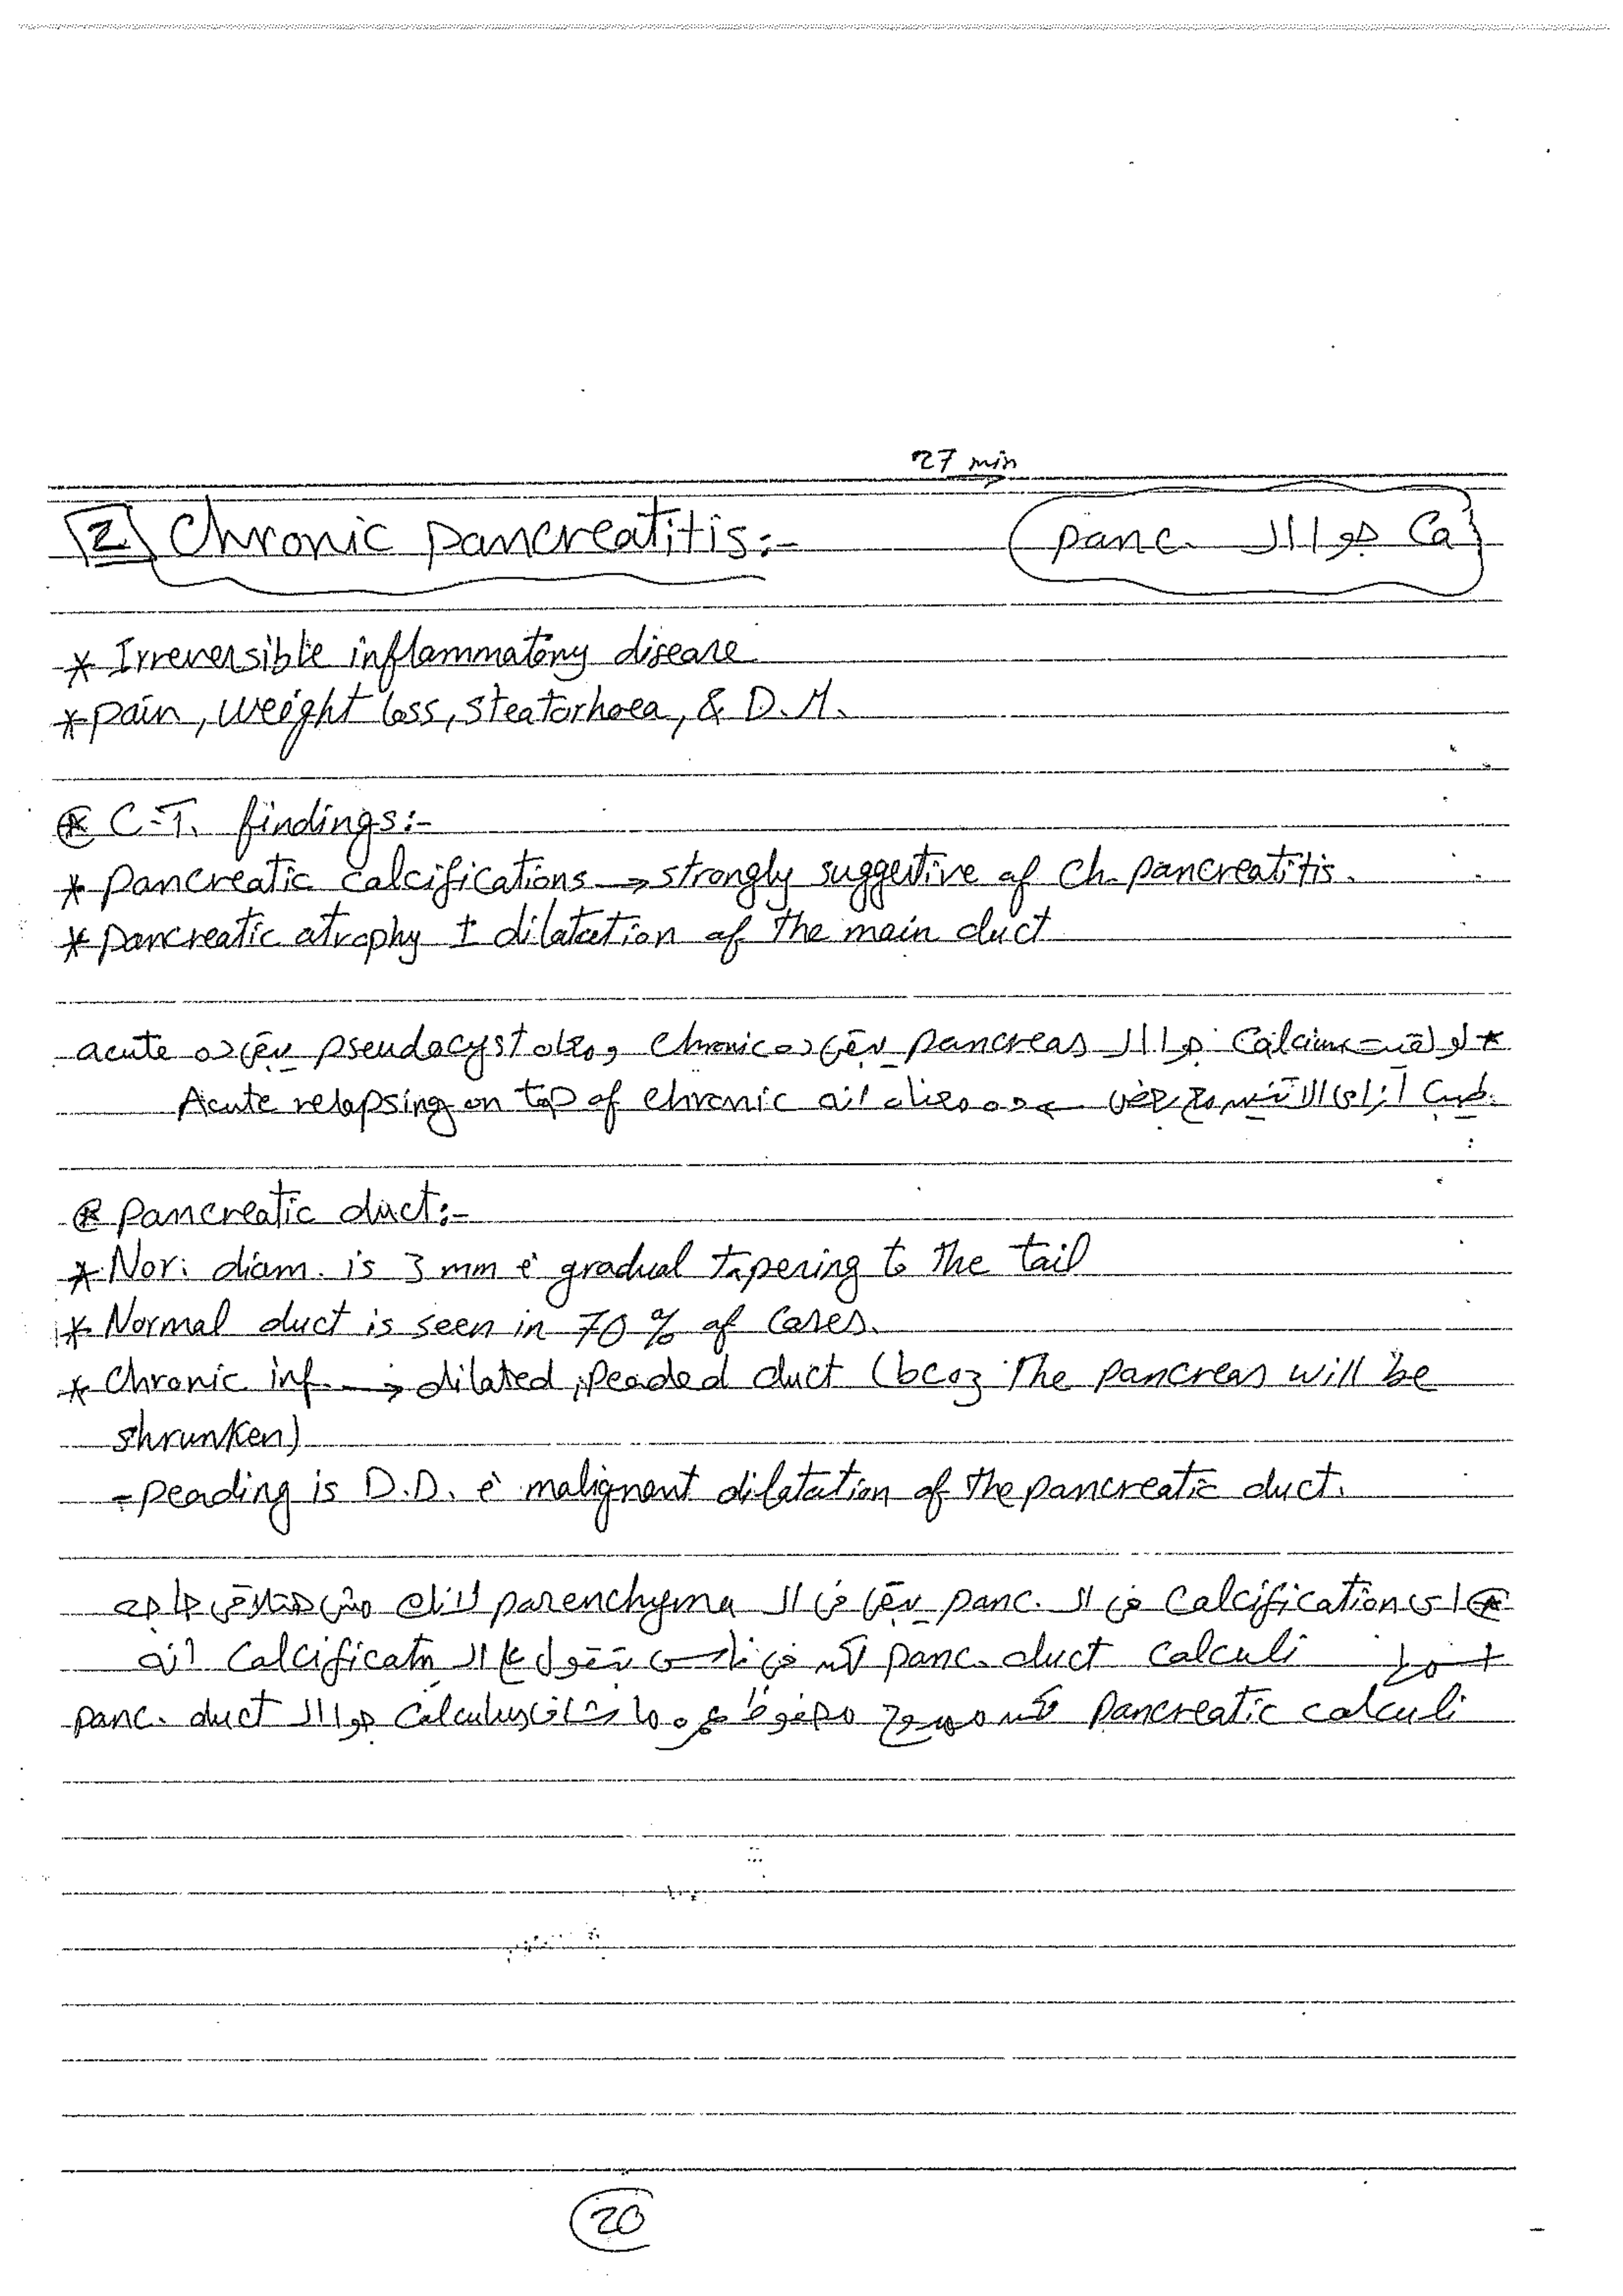 27 min
2 Chronic pancreatitis:-
Ca جوا الـ panc.
* Irreversible inflammatory disease
* pain, weight loss, steatorhoea, & D.M.
* C.T. findings:-
* pancreatic calcifications → strongly suggestive of Ch. pancreatitis.
* pancreatic atrophy ± dilatation of the main duct
* لو لقيت Calcium جوا الـ pancreas يبقى ده chronic و pseudocyst يبقى ده acute
طب ازاى الاتنين مع بعض ← ده معناه انه Acute relapsing on top of chronic
* pancreatic duct:-
* Nor. diam. is 3 mm è gradual tapering to the tail
* Normal duct is seen in 70 % of cases.
* Chronic inf. → dilated, peaded duct (bcoz the pancreas will be
shrunken)
- peading is D.D. è malignant dilatation of the pancreatic duct.
* اى Calcification فى الـ panc. يبقى فى الـ parenchyma لانك مش هتلاقى حاجه
اسمها panc. duct calculi فى ناس بتقول ع الـ Calcificatn انه
pancreatic calculi جوا الـ panc. duct